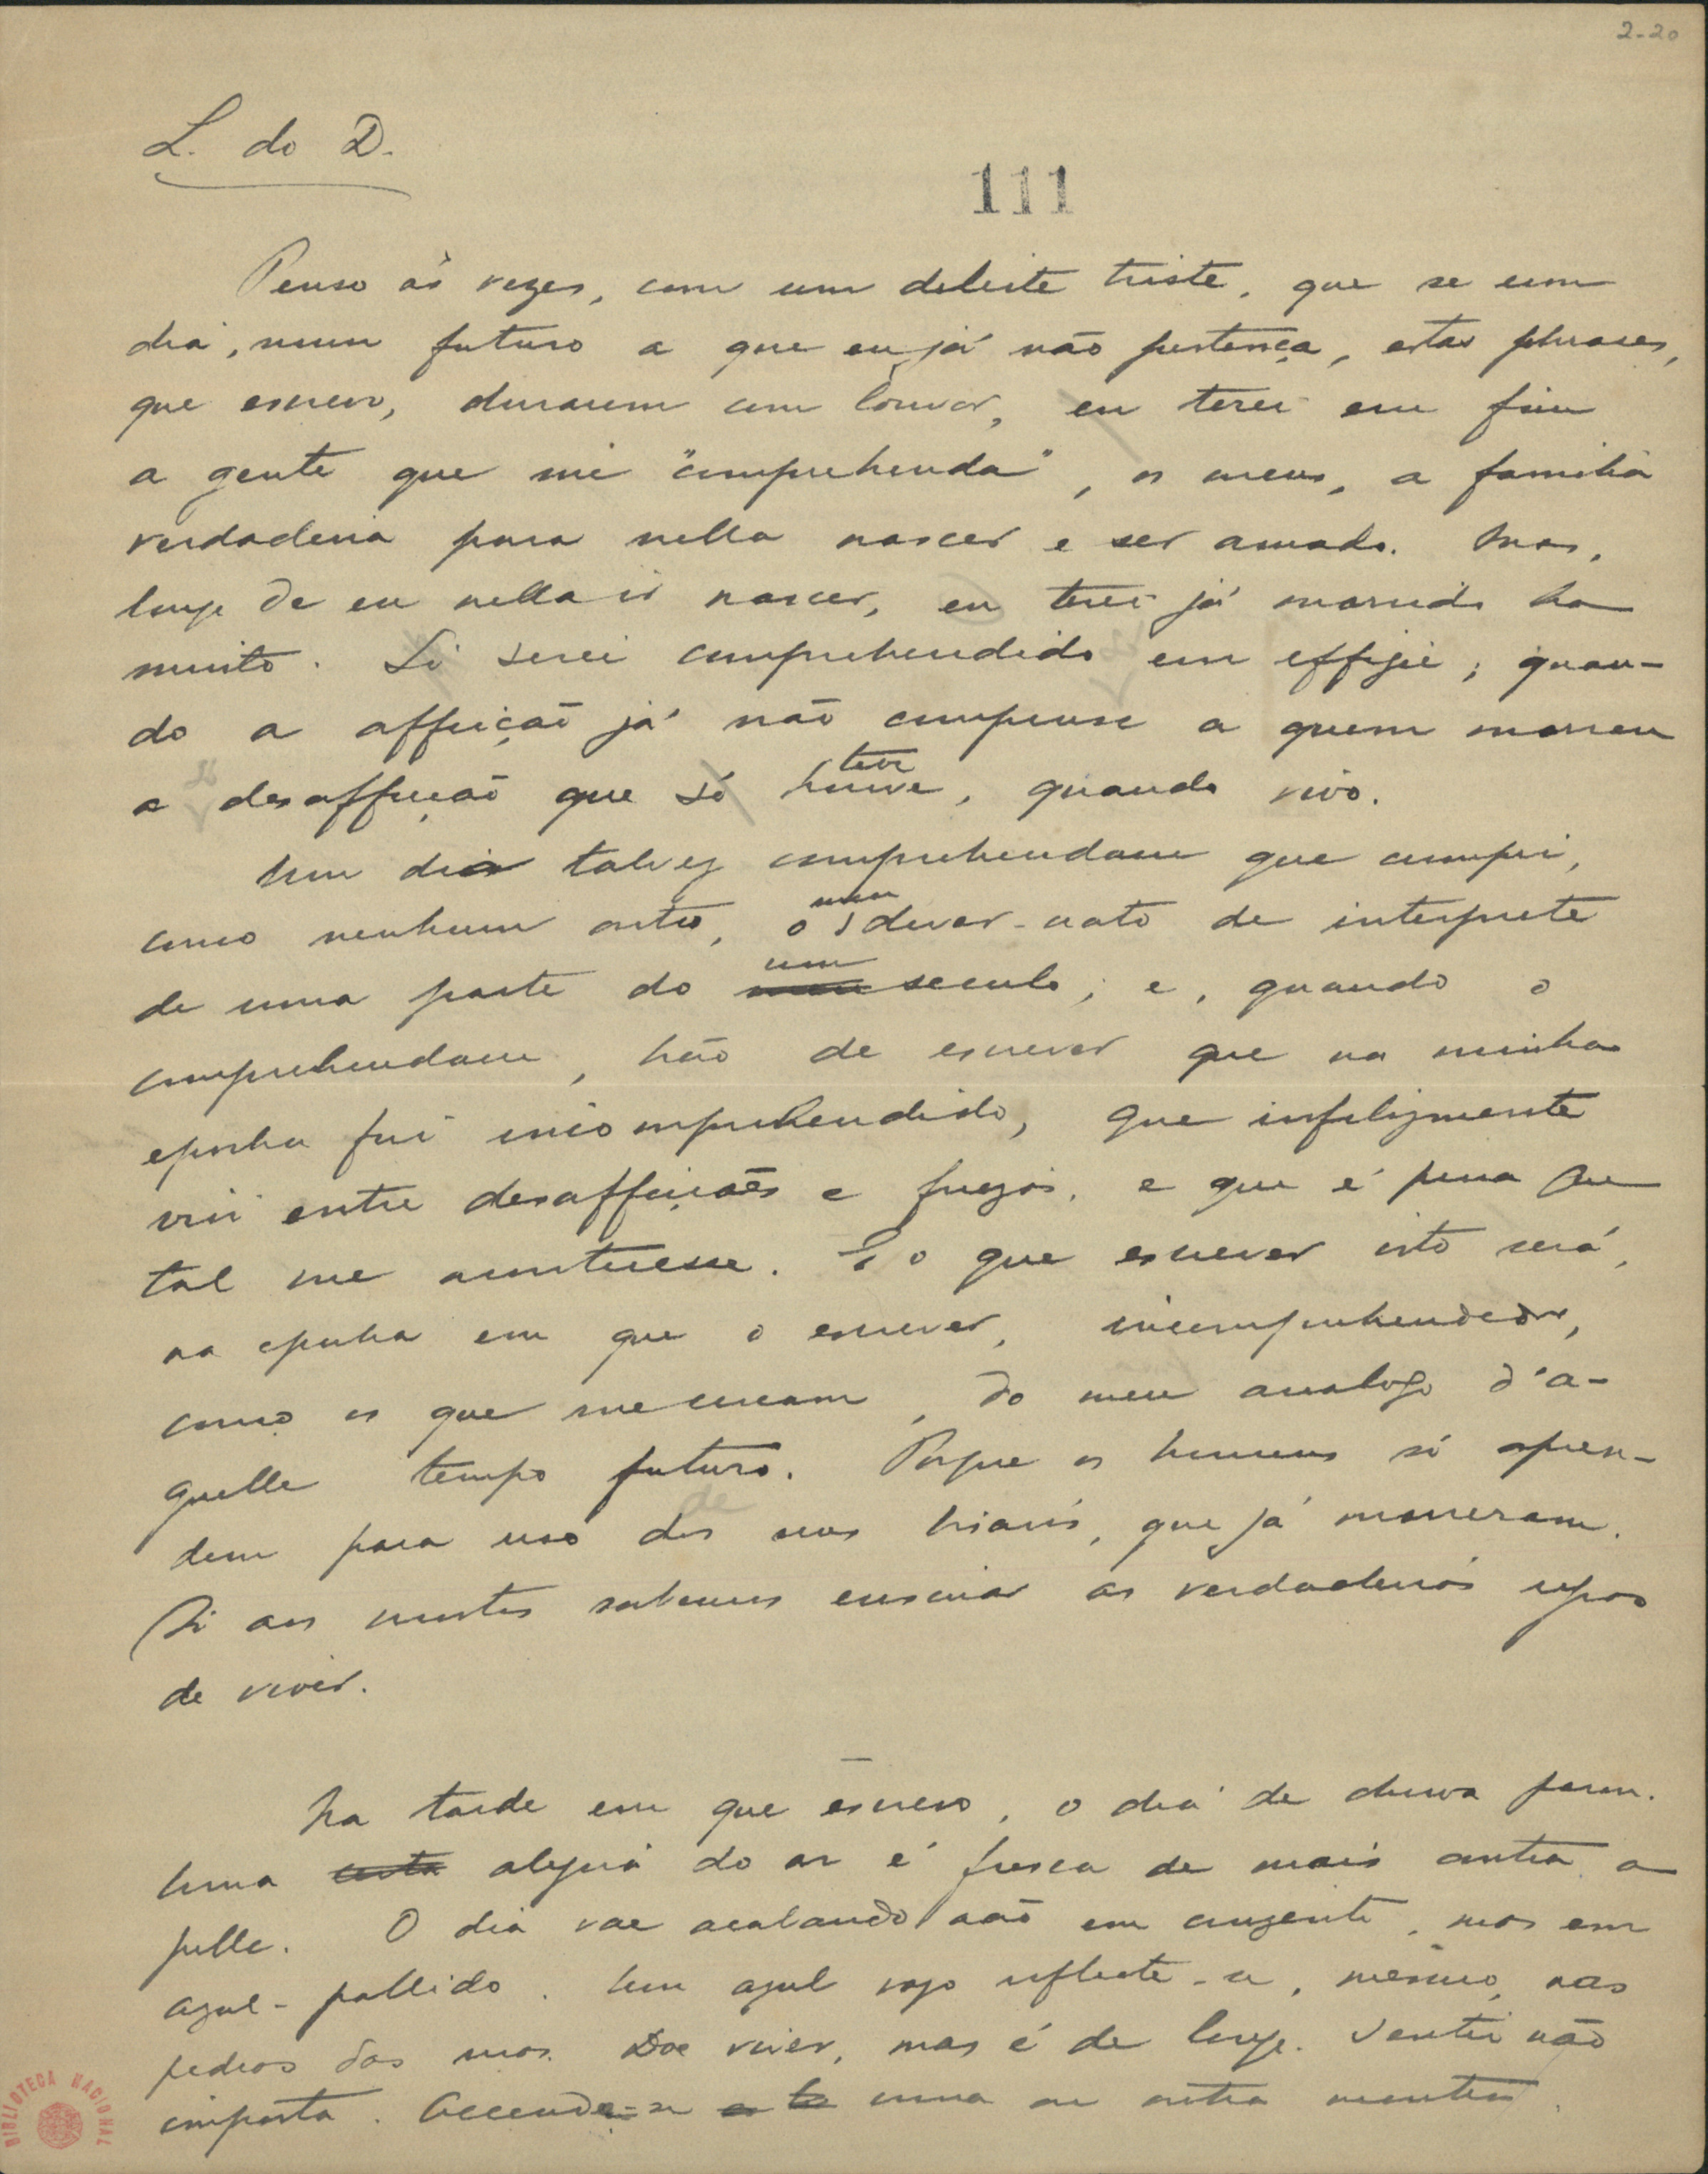 2-20
L. do D.
111
Penso às vezes, com um deleite triste, que se um
dia, num futuro a que eu já não pertença, estas phrases,
que escrevo, durarem com louvor, eu terei em fim
a gente que me "comprehenda", os meus, a familia
verdadeira para nella nascer e ser amado. Mas,
longe de eu nella ir nascer, eu terei já morrido ha
muito. Só serei comprehendido em effigie, quan-
do a affeição já não compense a quem morreu
a desaffeição que só houve, quando vivo.
teve
Um dia talvez comprehendam que cumpri,
como nenhum outro, o dever-nato de interprete
meu
de uma parte do seculo; e, quando o
um
comprehendam, hão de escrever que na minha
epocha fui incomprehendido, que infelizmente
vivi entre desaffeições e friezas, e que é pena que
tal me acontecesse. E o que escrever isto será,
na epocha em que o escrever, incomprehendedor,
como os que me cercam, do meu analogo d'a-
quelle tempo futuro. Porque os homens só apren-
dem para uso dos seus bisavós, que já morreram.
de
Só aos mortos sabemos ensinar as verdadeiras regras
de viver.
Na tarde em que escrevo, o dia de chuva parou.
Uma alegria do ar é fresca de mais contra a
pelle. O dia vae acabando não em cinzento, mas em
azul-pallido. Um azul vago reflecte-se, mesmo, nas
pedras das ruas. Doe viver, mas é de longe. Sentir não
importa. Accende-se uma ou outra montra.
BIBLIOTECA NACIONAL